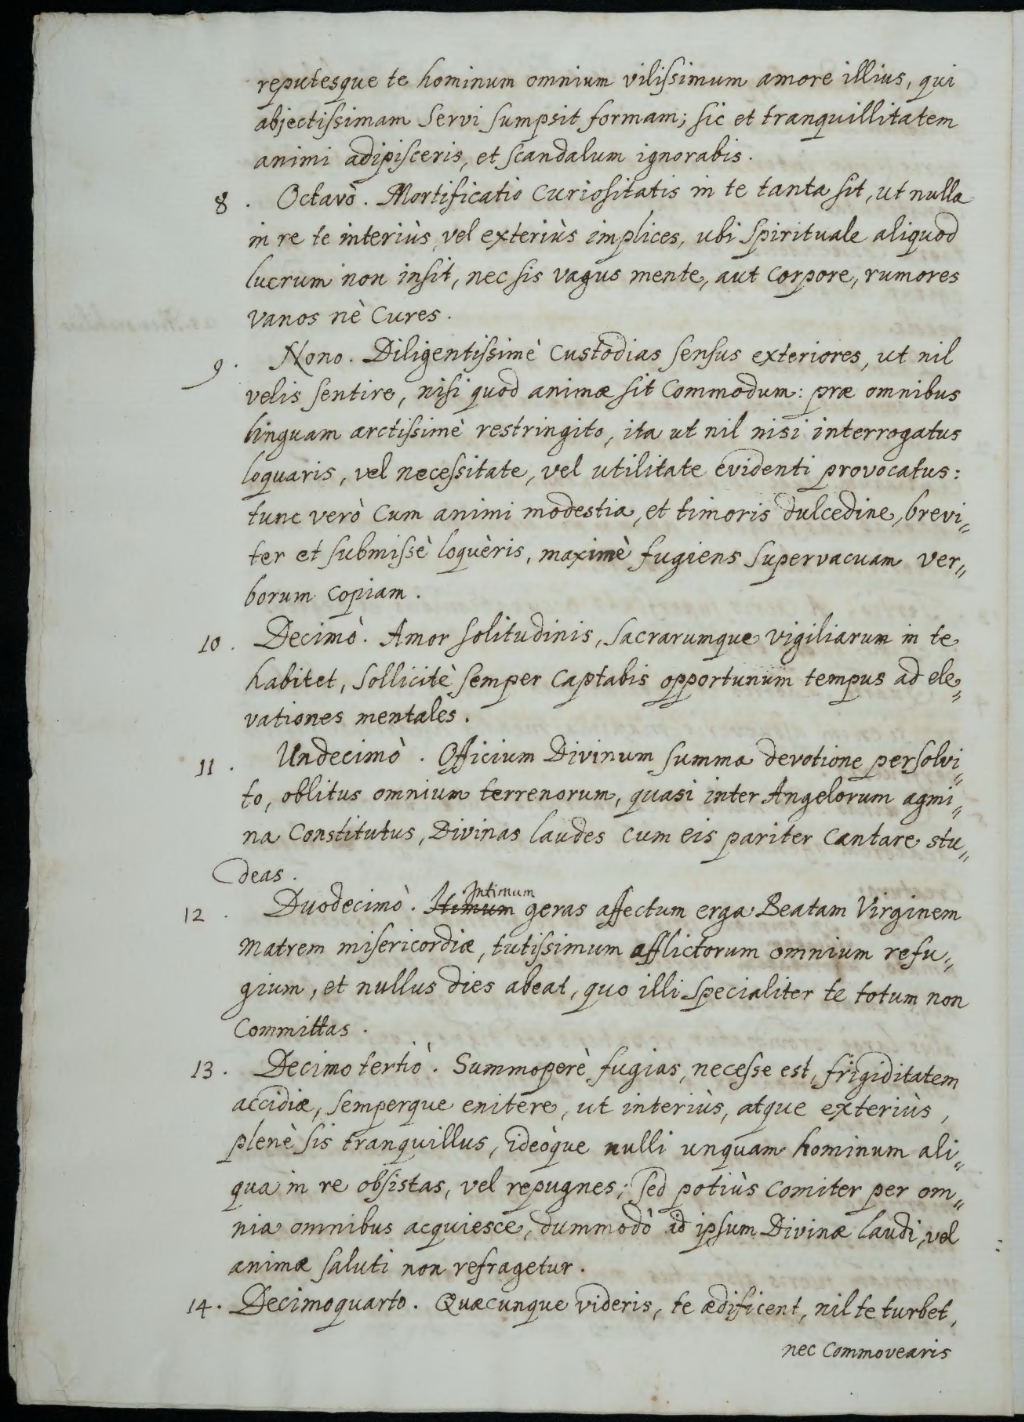 reputesque te hominum omnium vilissimum amore illius, qui
abjectissimam Servi sumpsit formam; sic et tranquillitatem
animi adipisceris, et scandalum ignorabis.
8. Octavò. Mortificatio Curiositatis in te tanta sit, ut nulla
in re te interiùs vel exteriùs implices, ubi Spirituale aliquod
lucrum non insit, nec sis vagus mente, aut Corpore, rumores
vanos nè Cures.
9. Nono. Diligentissimè Custodias sensus exteriores, ut nil
velis sentire, nisi quod animæ sit Commodum: præ omnibus
linguam arctissimè restringito, ita ut nil nisi interrogatus
loquaris, vel necessitate, vel utilitate evidenti provocatus:
tunc verò Cum animi modestia, et timoris dulcedine, brevi„
ter et submissè loquèris, maximè fugiens Supervacuam ver„
borum Copiam.
10. Decimò. Amor solitudinis, sacrarumque vigiliarum in te
habitet, sollicitè semper Captabis opportunum tempus ad ele„
vationes mentales.
11. Undecimò. Officium Divinum summa devotione persolvi„
to, oblitus omnium terrenorum, quasi inter Angelorum agmi„
na Constitutus, Divinas laudes cum eis pariter Cantare stu„
deas.
12. Duodecimò. Itimum Intimum geras affectum erga Beatam Virginem
Matrem misericordiæ, tutissimum afflictorum omnium refu„
gium, et nullus dies abeat, quo illi Specialiter te totum non
Committas.
13. Decimo tertiò. Summoperè fugias, necesse est, frigiditatem
accidiæ, semperque enitere, ut interiùs, atque exteriùs,
plenè sis tranquillus, ideòque nulli unquam hominum ali„
qua in re obsistas, vel repugnes; sed potiùs Comiter per om„
nia omnibus acquiesce, dummodò id ipsum Divinæ laudi, vel
animæ saluti non refragetur.
14. Decimoquarto. Quæcunque videris, te ædificent, nil te turbet,
nec Commovearis